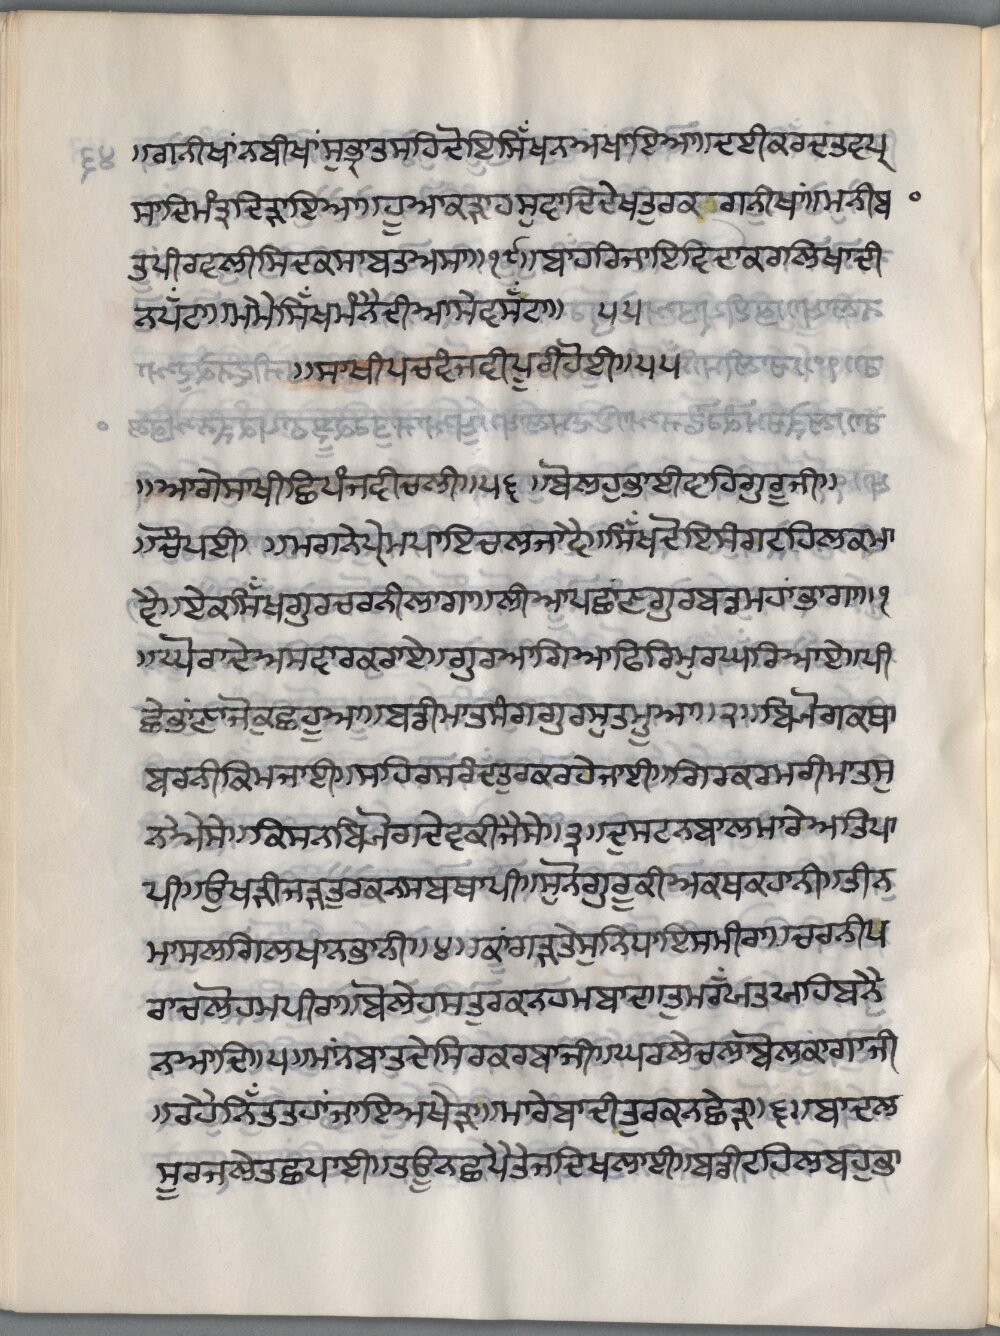 ॥ਗਨੀਖਾਂਨਬੀਖਾਂਸੁਭ੍ਰਾਤਸਹਿਦੋਇਸਿੱਖਨਅਖਾਇਆ॥ਦਈਕਰਦਤਵਪ੍ਰ
ਸਾਦਿਮੰਤ੍ਰਦਿੜਾਇਆ॥ਹੂਆਕੜਾਹਸੁਵਾਦਿਦੇਖਤੁਰਕਗਨੀਖਾਂ॥ਮੁਨੀਬ
ਤੁਪੀਰਵਲੀਸਿਦਕਸਾਬਤਅਸਾ॥੧੮॥ਬਾਹਰਿਜਾਇਵਿਦਾਕਰਲਿਖਾਦੀ
ਨਪੱਟਾ॥ਮੇਮੇਸਿੱਖਮੰਨੈਦੀਆਸੇਵਸੱਟਾ॥ ੫੫
॥ਸਾਖੀਪਚਵੰਜਵੀਪੂਰੀਹੋਈ॥੫੫
॥ਆਗੇਸਾਖੀਛਿਪੰਜਵੀਚਲੀ॥੫੬॥ਬੋਲਹੁਭਾਈਵਾਹਿਗੁਰੂਜੀ॥
॥ਚੌਪਈ॥ ॥ਮਗਨੇਪ੍ਰੇਮਪਾਇਚਲਜਾਵੈ॥ਸਿੱਖਦੋਇਸੰਗਟਹਿਲਕਮਾ
ਵੈ॥ਏਕਸਿੱਖਗੁਰਚਰਨੀਲਾਗਾ॥ਲੀਆਪਛਾਂਣਗੁਰਬਡਮਹਾਂਭਾਗਾ॥੧
॥ਘੋਰਾਦੇਅਸਵਾਰਕਰਾਏ॥ਗੁਰਆਗਿਆਫਿਰਿਮੁਰਘਰਿਆਏ॥ਪੀ
ਛੇਭਾਂਣਾਜੋਕਛੁਹੂਆ॥ਬਡੀਮਾਤਸੰਗਗੁਰਸੁਤਮੂਆ॥੨॥ਬਿਜੋਗਕਥਾ
ਬਰਨੀਕਿਮਜਾਈ॥ਸਹਿਰਸਰੰਦਤੁਰਕਰਹੇਜਾਈ॥ਗਿਰਕਰਮਰੀਮਾਤਸੁ
ਨੇਐਸੇ॥ਕਿਸਨਬਿਜੋਗਦੇਵਕੀਜੈਸੇ॥੩॥ਦੁਸਟਨਬਾਲਮਾਰੇਅਤਿਪਾ
ਪੀ॥ਉਖੜੀਜੜਤੁਰਕਨਸਬਥਾਪੀ॥ਸੁਨੋਗੁਰੂਕੀਅਕਥਕਹਾਨੀ॥ਤੀਨ
ਮਾਸਲਗਿਲਖਾਨਭਾਨੀ॥੪॥ਕਾਂਗੜਤੇਸੁਨਿਧਾਇਸਮੀਰਾ॥ਚਰਨੀਪ
ਰਾਚਲੋਹਮਪੀਰਾ॥ਬੋਲੇਹਮਤੁਰਕਨਹਮਬਾਦਾ॥ਤੁਮਰੱਖਤਆਹਿਬਨੈ
ਨਆਦਿ॥੫॥ਮਾਂਨਬਾਤਦੇਸਿਰਕਰਬਾਜੀ॥ਘਰਲੇਚਲਾਬੋਲਕਾਂਗਾਜੀ
॥ਰਹੇਨਿੱਤਤਹਾਂਜਾਇਅਖੇੜਾ॥ਮਾਰੇਬਾਦੀਤੁਰਕਨਛੇੜਾ॥੬॥ਬਾਦਲ
ਸੂਰਜਲੇਤਛਪਾਈ॥ਤਊਨਛਪੈਤੇਜਦਿਖਲਾਈ॥ਬਡੀਟਹਿਲਬਹੁਭਾ